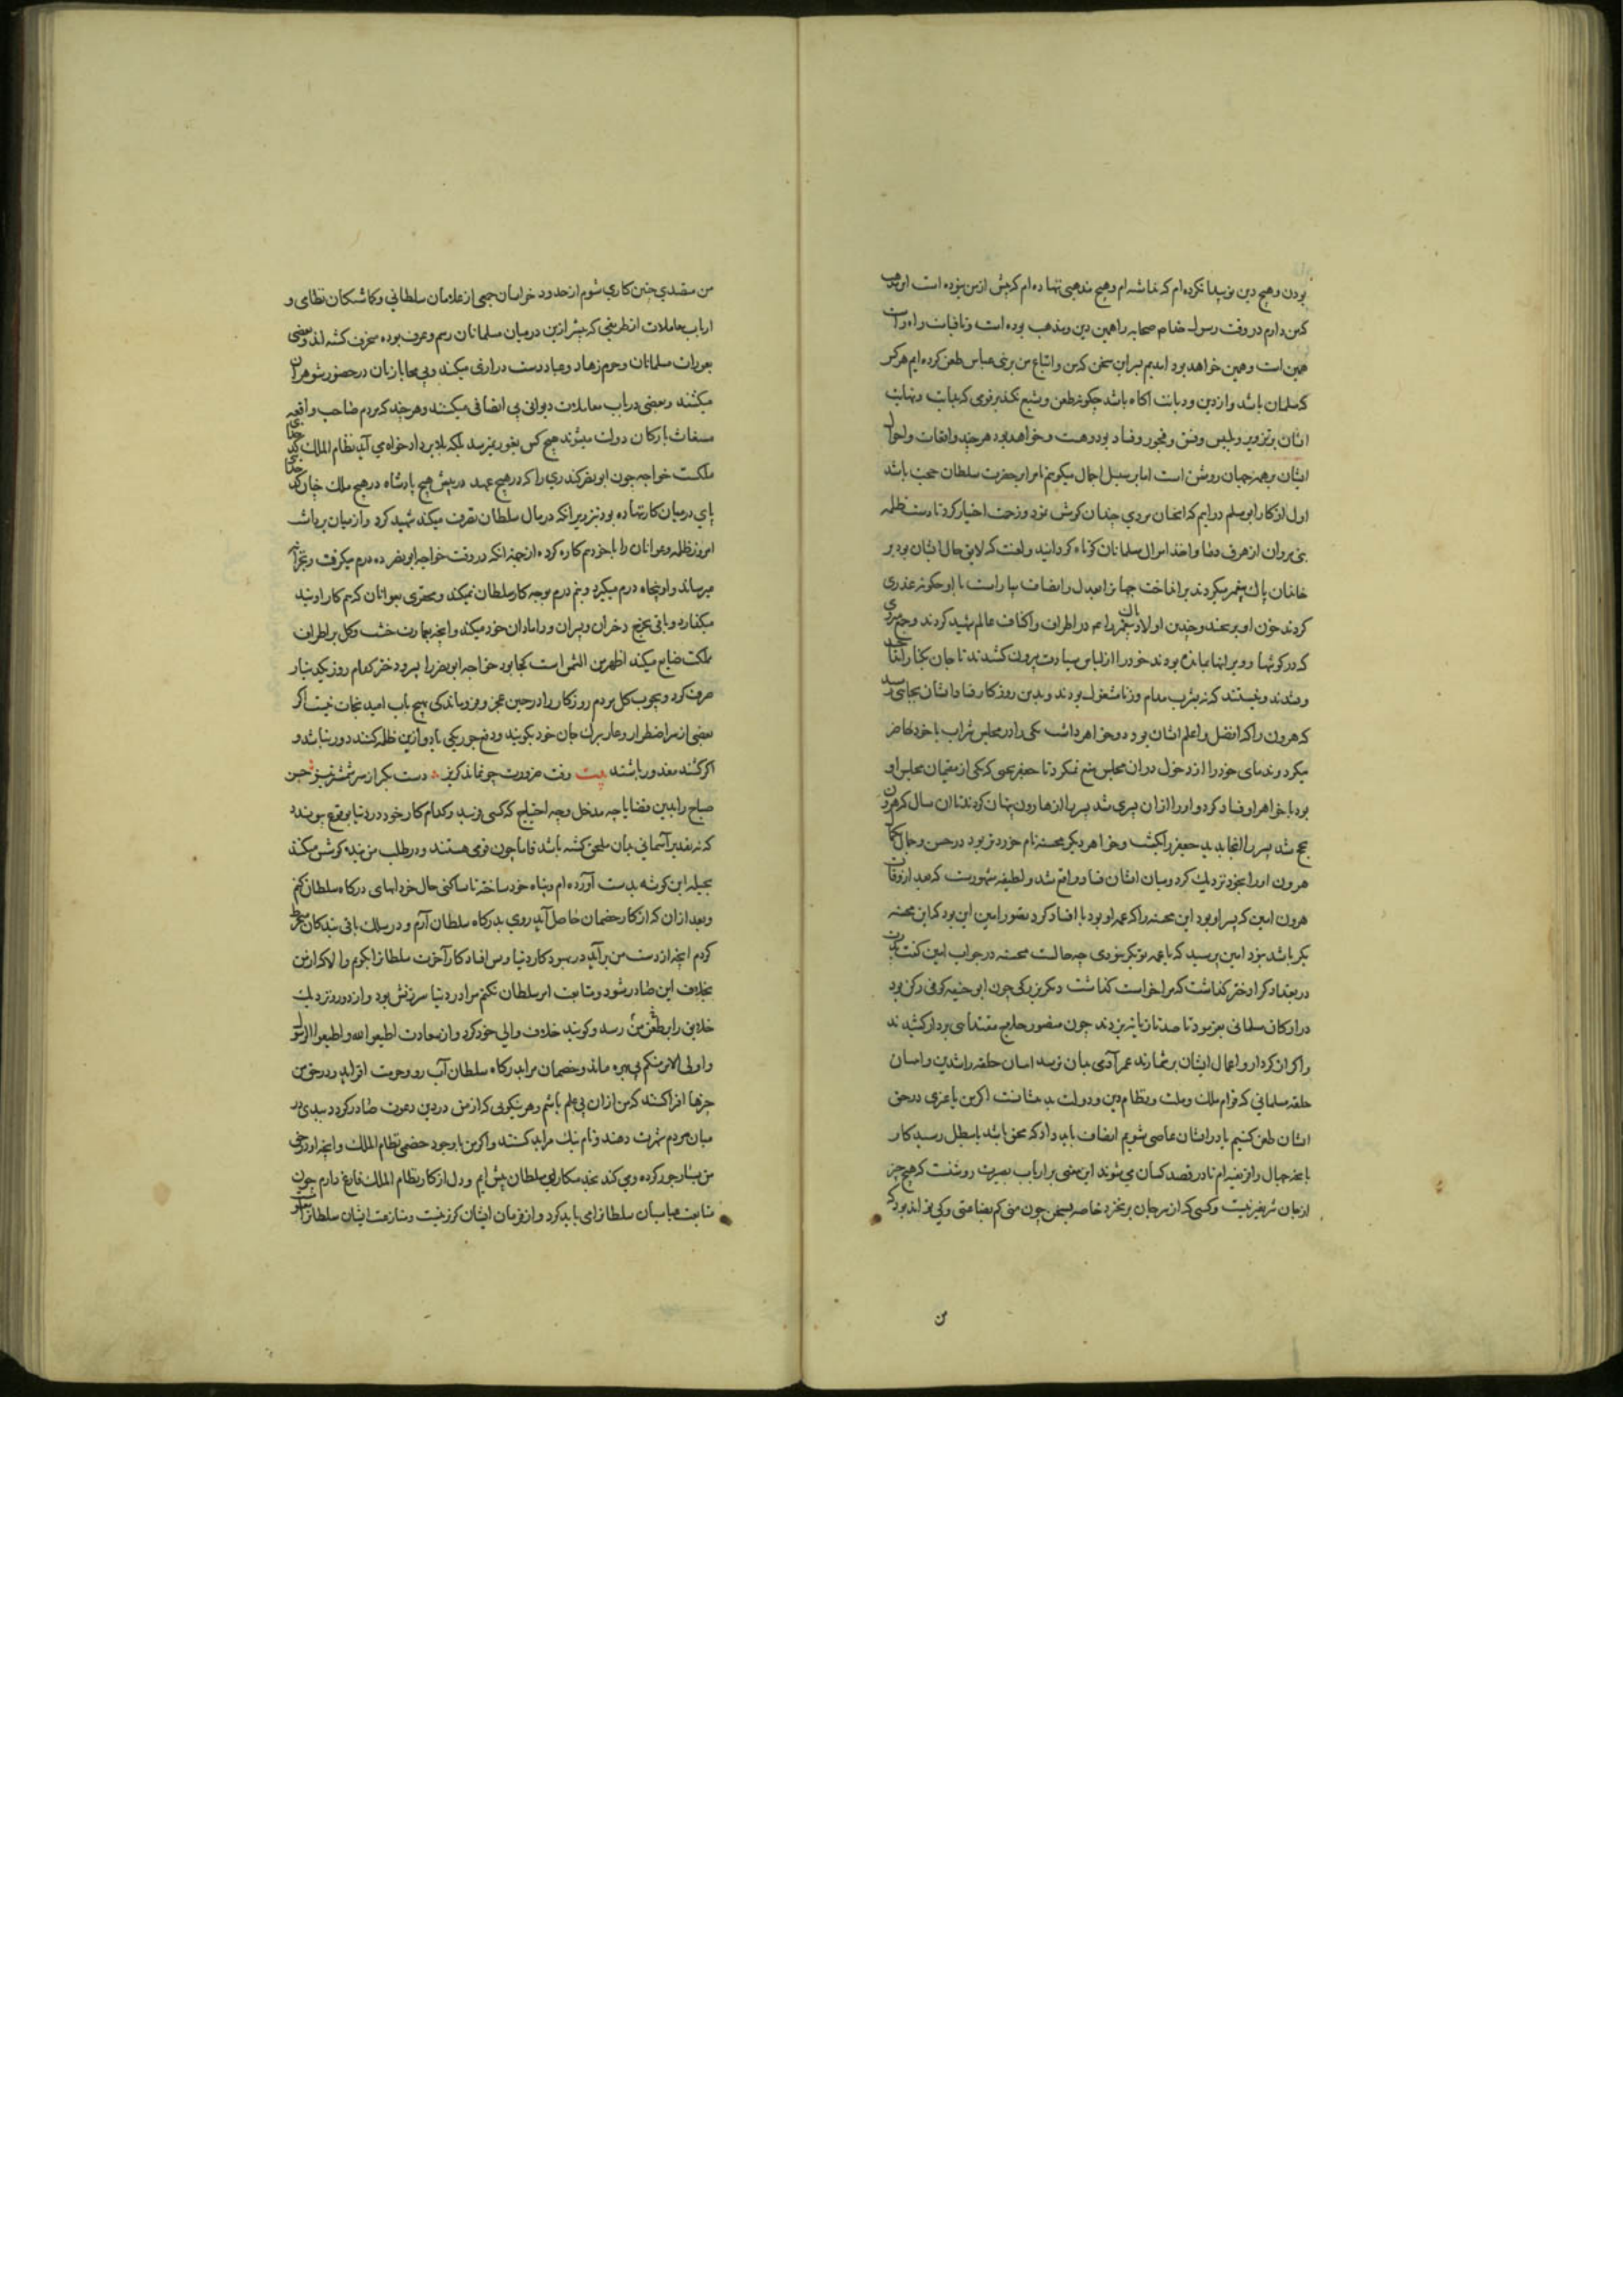 بودن و هیچ دین نو پیدا نکرده‌ام که نباشد ام و هیچ مذهبی ننهاده‌ام که پیش از من نبوده است و مذهب
که من دارم در وقت رسول خدا م صحابه را همین دین و مذهب بوده است و تا قیامت راه راست
همین است و همین خواهد بود امدیم بر این سخن که من و اتباع من بر بنی عباس طعن کرده‌ایم هر کس
که مسلمان باشد و از دین و دیانت آکاه باشد چکونه طعن و تشنیع نکند بر قومی که بدایت و نهایت
ایشان بر تزویر و تلبیس و فسق و فجور و فساد بوده و هست و خواهد بود هر چند واقعات و احوال
ایشان بر همه جهان روشن است اما بر سبیل اجمال میکویم تا مرا بر حضرت سلطان حجت باشد
اول از کار ابو مسلم درایم که انچنان مردی چندان کوشش نمود و زحمت اختیار کرد تا دست ظلمه
بنی مروان از هرق دما و اخذ اموال مسلمانان کوتاه کردانید و لعنت که لایق حال ایشان بود بر
خاندان پاک پیغمبر میکردند برانداخت جهانرا بعدل و انصاف بیاراست با او چکونه غدری
کردند و خون او بریختند و چندین اولاد پیغمبر را عم در اطراف و اکناف عالم شهید کردند و جمع
که در کوشها و ویرانها بمانده بودند خود را از لباس سیادت بیرون کشیدند تا جان بکنار
و مدند و نیستند که به شرب مدام و زنا مشغول بودند و بدین روزکار فساد ایشان بجائی رسید
که هرون را که افضل و اعلم ایشان بود دو خواهر داشت یکی را در مجلس شراب با خود حاضر
میکرد و ندمای خود را از دخول در آن مجلس منع نمیکرد تا جعفر یحیی که یکی از مقیمان مجلس او
بود با خواهر او فساد کرد و او را از آن پسری شد پسر را از هارون پنهان کردند تا آن سال که هرون
بحج شد پسر را آنجا بدید جعفر را بکشت و خواهر دیکر محسنه نام خوردتر بود در حسن و جمال
هرون او را بخود نزدیک کرد و میان ایشان فساد واقع شد و لطیفه مشهورست که بعد از وفات
هرون امین که پسر او بود این محسنه را که عمه او بود با او فساد کرد تصور امین این بود که این محسنه
بکر باشد نبود امین پرسید که یا عمه تو بکر نبودی چه حالت محسنه در جواب امین کفت
در بغداد کرا دختر کذاشت که مرا خواست کذاشت دیکر بزرکی چون ابو حنیفه کوفی رکن بود
در ارکان مسلمانی بفرمود تا صد تازیانه بزدند چون منصور حلاج مقتدایی بردار کشیدند
و اکر از کردار و اعمال ایشان برشمارند عمر آدمی بدان نرسد
خلفه مسلمانی که قوام ملک و ملت و نظام دین و دولت بدیشانست اکر من یا غیری در حق
ایشان طعن کنیم یا در ایشان عاصی شویم انصاف باید داد که محق باشد یا مبطل رسید کار
بر ارباب بصیرت روشنست که هیچ چیز
از جان شریفتر نیست و کسی که از سر جان برخیزد خاصه
من
من متصدی چنین کاری شوم از حدود خراسان جمعی از غلامان سلطانی و کماشتکان نظامی و
ارباب معاملات از طریقی که پیش ازین در میان مسلمانان رسم و عرف بوده منحرف کشته اند و بعضی
بعورات مسلمانان و حرم زهاد و عباد دست درازی میکنند و بی محابا زنان در حضور شوهران
میکشند و بعضی در باب معاملات دیوانی بی انصافی میکنند و هر چند که مردم صاحب واقعه
مستغاث بارکان دولت میبرند هیچ کس بغور نمیرسد بلکه بلا بر دادخواه می آید نظام الملک
ملکست خواجه چون ابو نصر کندری را که در هیچ عهد در پیش هیچ پادشاه در هیچ ملک چنان
پای در میان کار ننهاده بود بتزویر انکه در مال سلطان تصرف میکند شهید کرد و از میان برداشت
امروز ظلمه و عوانان را با خود هم کار کرده از جمله انکه در وقت خواجه ابو نصر ده درم میکرفت
میرساند و او پنجاه درم میکیرد و نیم درم بوجه کار سلطان نمیکند و محقری بعوانان که هم کار اویند
میکذارد و باقی بخرج دختران و پسران و دامادان خود میکند و انچه بعمارت خشت و کل بر اطراف
مملکت ضایع میکند اظهر من الشمس است کجا بود خواجه ابو نصر را پسر و دختر کدام روز یکدینار
صرف کرد بچوب و کل مردم روزکار را در حین عجز و فروماندکی بهیچ باب امید نجات نیست اکر
بعضی از سر اضطرار و عار ترک جان خود بکویند و دفع جور یکی یا دو ازین ظلمه کنند دور نباشد و
اکر کنند معذور باشند بیت وقت ضرورت چو نماند کریز دست بکیرد سر شمشیر تیز حسن
صباح را بدین قضایا چه مدخل و چه احتیاج که کسی فریبد و کدام کار خود در دنیا بوقوع پیوندد
که نه تقدیر آسمانی بدان ملحق کشته باشد فاما چون قومی هستند و در طلب من بنده کوشش میکنند
بحیله این کوشه بدست آورده‌ام و پناه خود ساخته تا ساکن حال خود انهای درکاه سلطان کنم
و بعد از آن که از کار خصمان حاصل آید روی بدرکاه سلطان آرم و در سلک باقی بندکان
کردم انچه از دست من برآید در بهبود کار دنیا و پس افتاد کار آخرت سلطانرا بکویم و الا که از من
بخلاف این صادر شود و متابعت امر سلطان نکنم مرا در دنیا سرزنش بود و از دور و نزدیک
خلایق را بر طعن من رسد و کویند خلاف والی خود کرد و از سعادت اطیعوا الله و اطیعوا الرسول
و اولی الامر منکم بی بهره ماند و خصمان مرا بدرکاه سلطان آب رو و حرمت افزاید و در حق من
چیزها افترا کنند که من از آن بی علم باشم و هر نیکویی که از من در دین دعوت صادر کردد ببدی در
میان مردم شهرت دهند و نام نیک مرا بد کنند و اکر من با وجود خصمی نظام الملک و انچه او در حق
من بسیار جور کرده و می کند
متابعت عباسیان سلطانرا می باید کرد و از فرمان ایشان کریز نیست و منازعت ایشان سلطانرا